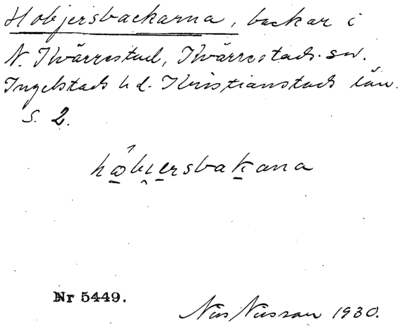 Hobjersbackarna, backar i
N. Kvärrestad, Kvärrestads sn.
Ingelstads hd. Kristianstads län.
S. 2.
Nr 5449.
Nils Nilsson 1930.